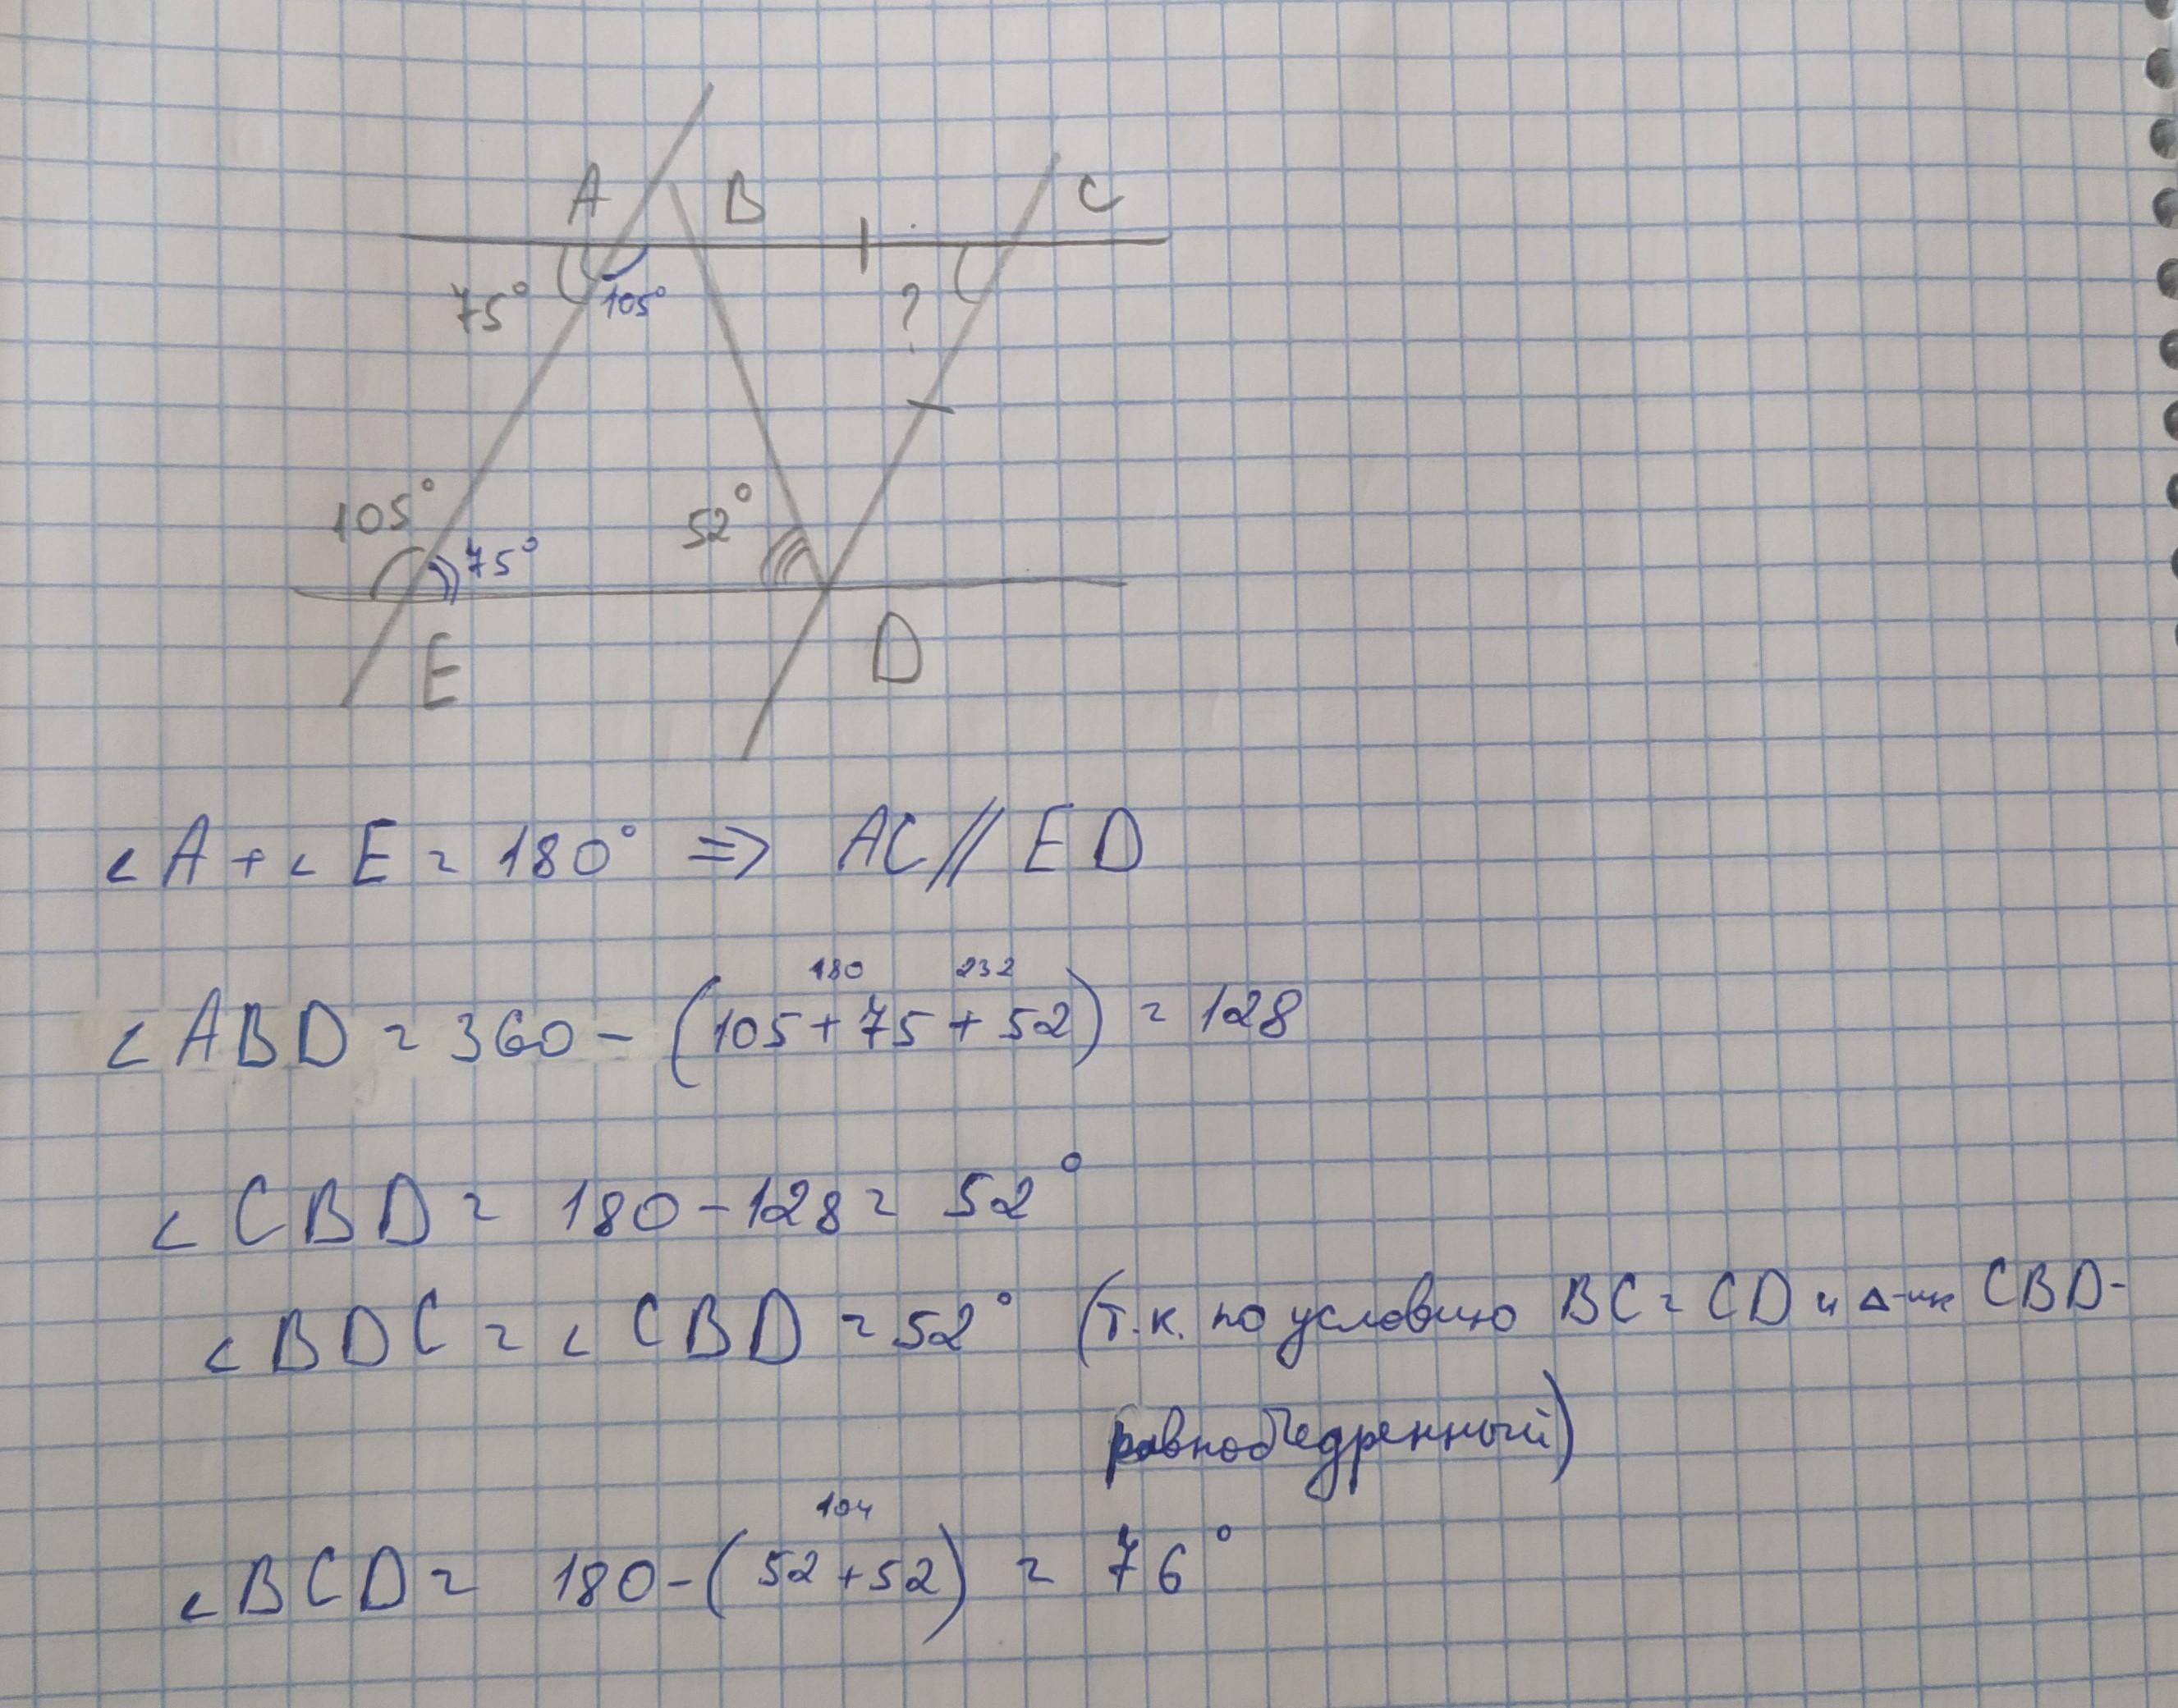 A B C
75° 105° ?
105° 75° 52°
E D
∠A + ∠E = 180° => AC // ED
180 232
∠ABD = 360 - (105 + 75 + 52) = 128
∠CBD = 180 - 128 = 52°
∠BDC = ∠CBD = 52° (т.к. по условию BC = CD и Δ-ик CBD-
равнобедренный)
104
∠BCD = 180 - (52 + 52) = 76°